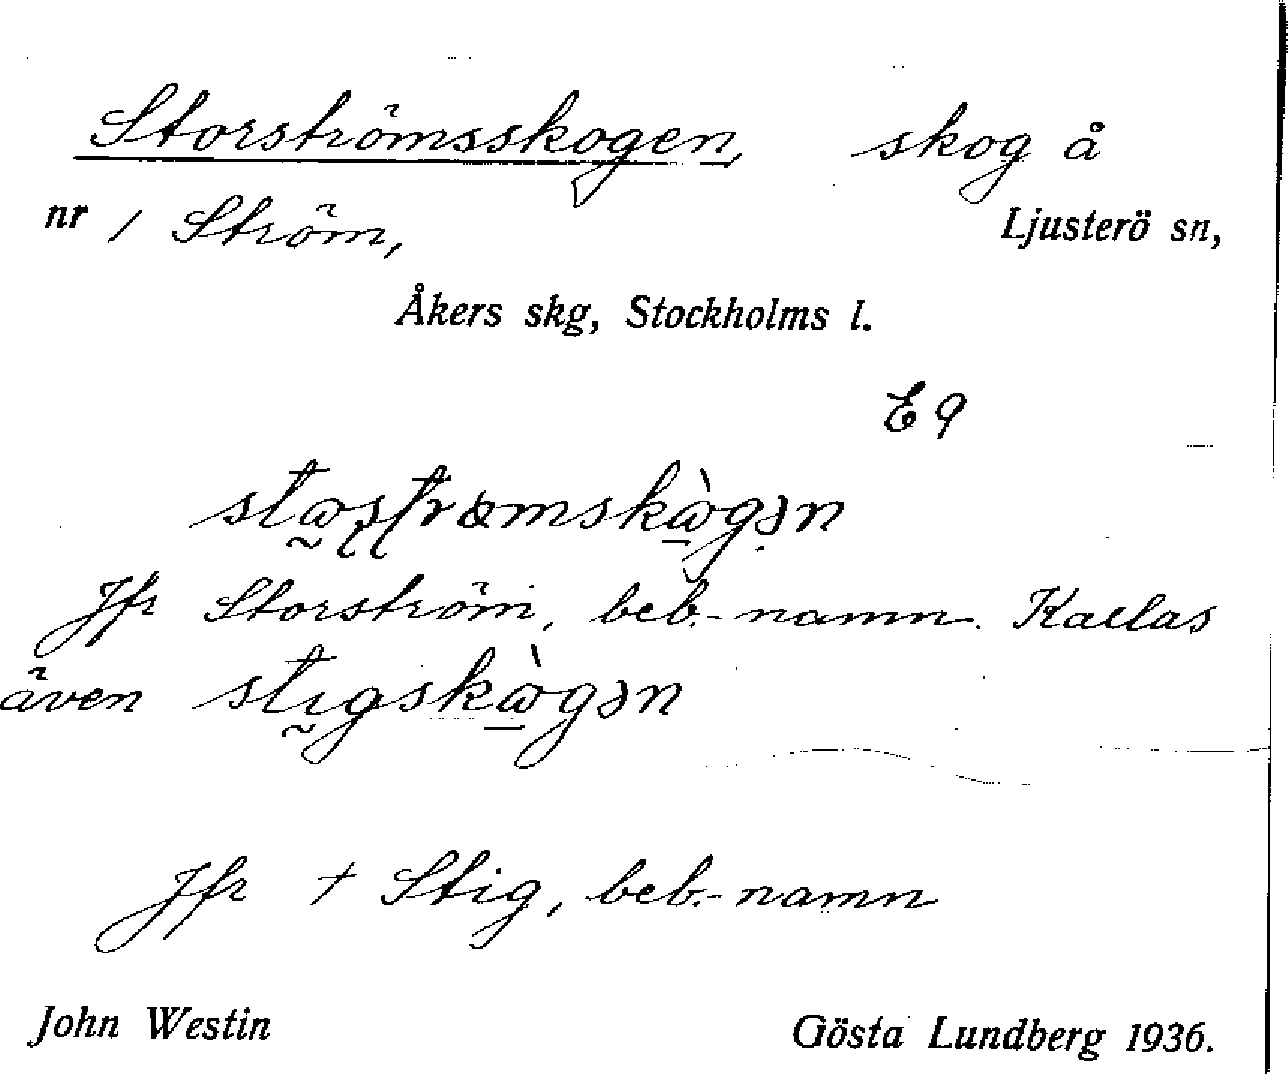 Storströmsskogen, skog å
nr 1 Ström, Ljusterö sn,
Åkers skg, Stockholms l.
E 9
Jfr Storström, beb.-namn. Kallas
även
Jfr † Stig, beb.-namn
John Westin Gösta Lundberg 1936.